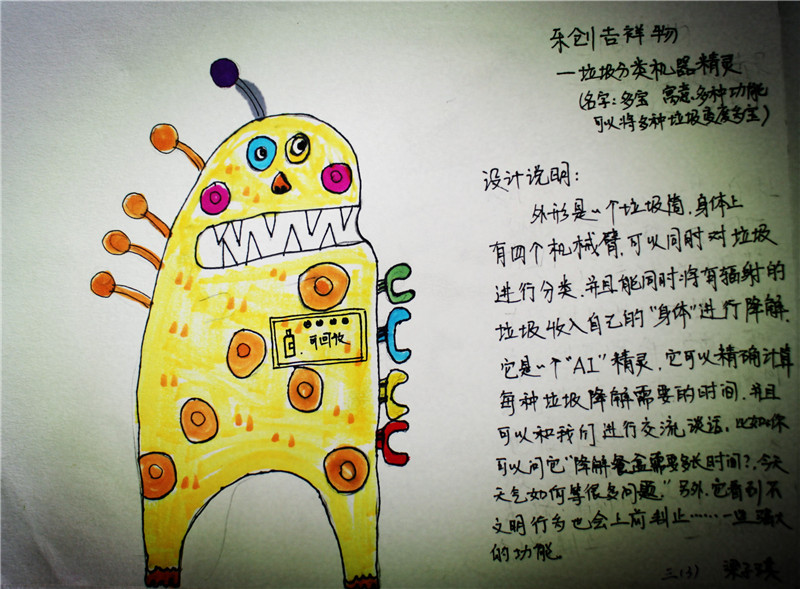 乐创吉祥物
—垃圾分类机器精灵
(名字:多宝 寓意:多种功能
可以将多种垃圾变废为宝)
设计说明:
外形是一个垃圾筒,身体上
有四个机械臂,可以同时对垃圾
进行分类.并且能同时将有辐射的
垃圾收入自己的"身体"进行降解.
它是一个"AI"精灵,它可以精确计算
每种垃圾降解需要的时间.并且
可以和我们进行交流谈话,比如:你
可以问它"降解餐盒需要多长时间?,今天
天气如何等很多问题."另外,它看到不
文明行为也会上前制止……一些强大
的功能。
三(3) 梁子
可回收